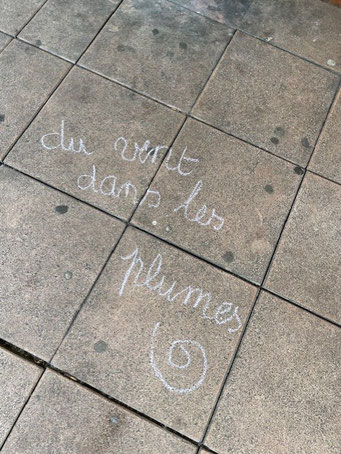 du vent
dans les
plumes